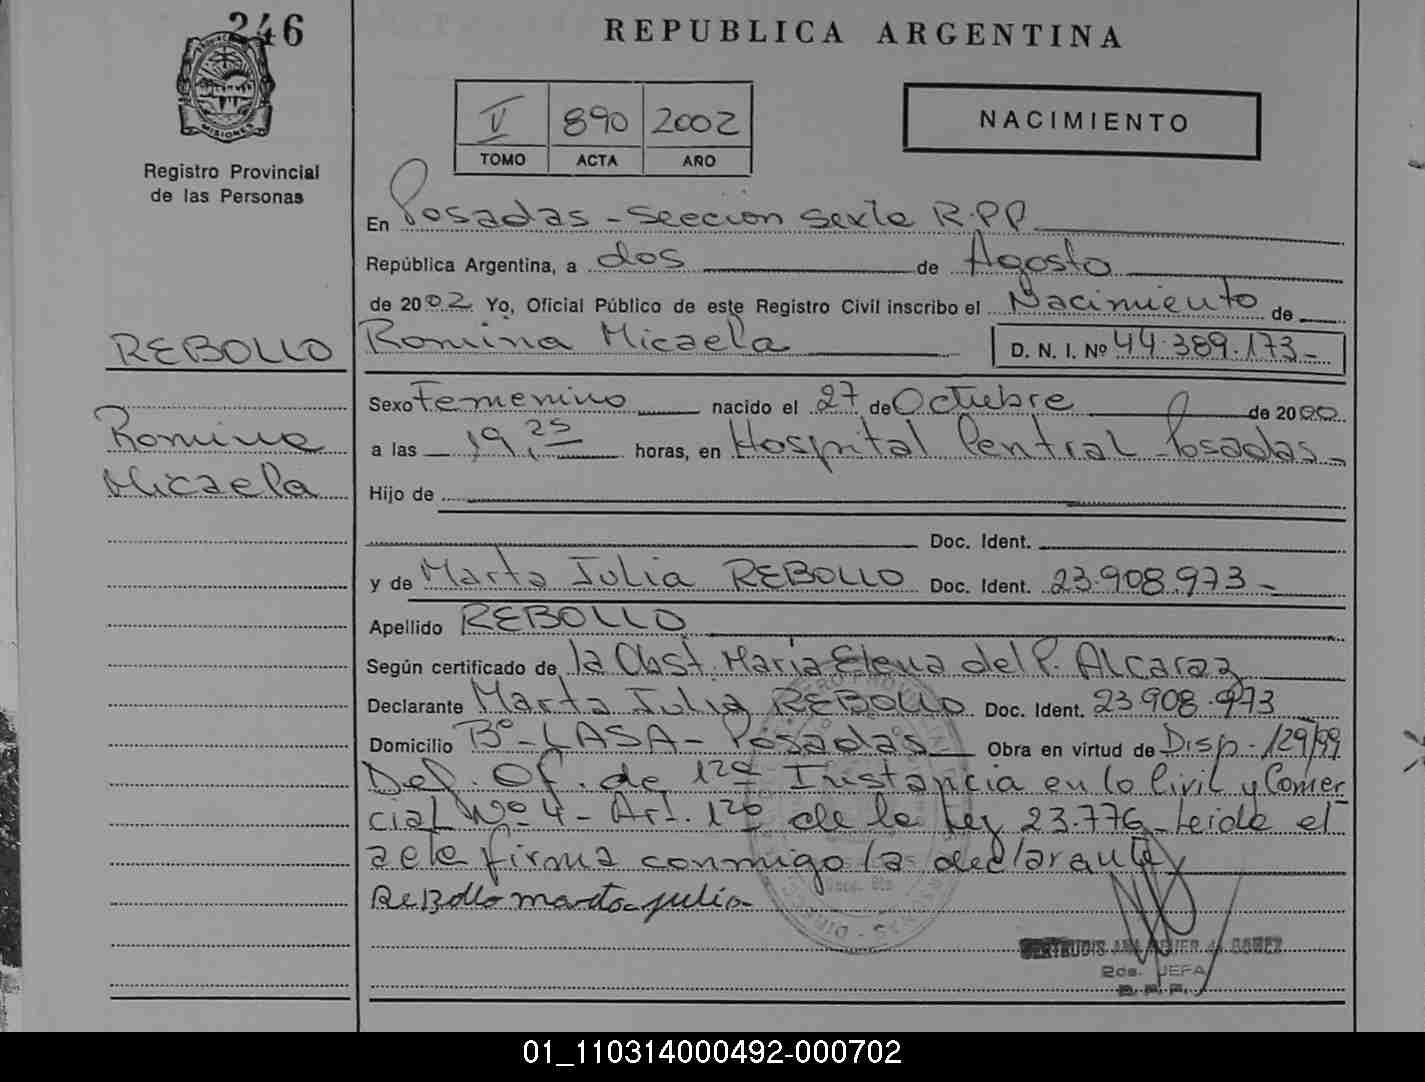 246
REPUBLICA ARGENTINA
MISIONES
Registro Provincial
de las Personas
V 890 2002
TOMO ACTA AÑO
NACIMIENTO
En Posadas - Sección Sexta R.P.P.
República Argentina, a dos de Agosto
de 2002 Yo, Oficial Público de este Registro Civil inscribo el Nacimiento de
REBOLLO
Romina Micaela D. N. I. Nº 44.389.173
Sexo Femenino nacido el 27 de Octubre de 2000
Romina
a las 19,25 horas, en Hospital Central Posadas
Micaela
Hijo de
Doc. Ident.
y de Marta Julia REBOLLO Doc. Ident. 23.908.973
Apellido REBOLLO
Según certificado de la Obst. María Elena del P. Alcaraz
Declarante Marta Julia REBOLLO Doc. Ident. 23.908.973
Domicilio Bº LASA - Posadas Obra en virtud de Disp. 129/99
Def. Of. de 1ra Instancia en lo Civil y Comer
cial Nº 4 - Art. 12º de la Ley 23.776 - Leída el
acta firma conmigo la declarante
Rebollo marta julia
GERTRUDIS ANA GOMEZ
2da. JEFA
R. P. P.
01_110314000492-000702